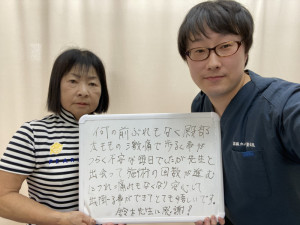 何の前ぶれもなく股関
太ももの激痛で歩る事が
つらく不安な毎日でしたが先生と
出会って施術の回数が進む
痛みもなくなり安心して
出掛る事ができてとても嬉しいです。
鈴木先生に感謝!